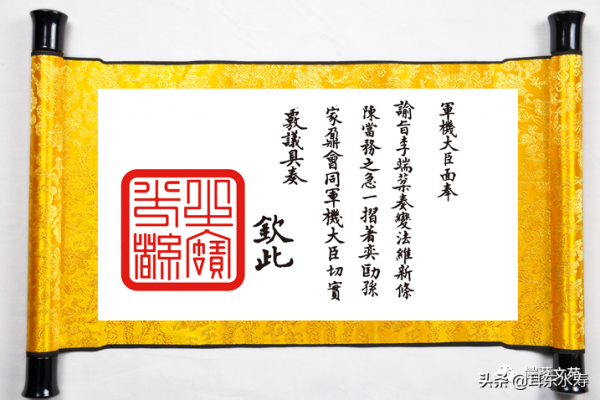 軍機大臣面奉
諭旨李端棻奏變法維新條
陳當務之急一摺著奕劻孫
家鼐會同軍機大臣切實
覈議具奏
欽此
头条 @耳东水寿